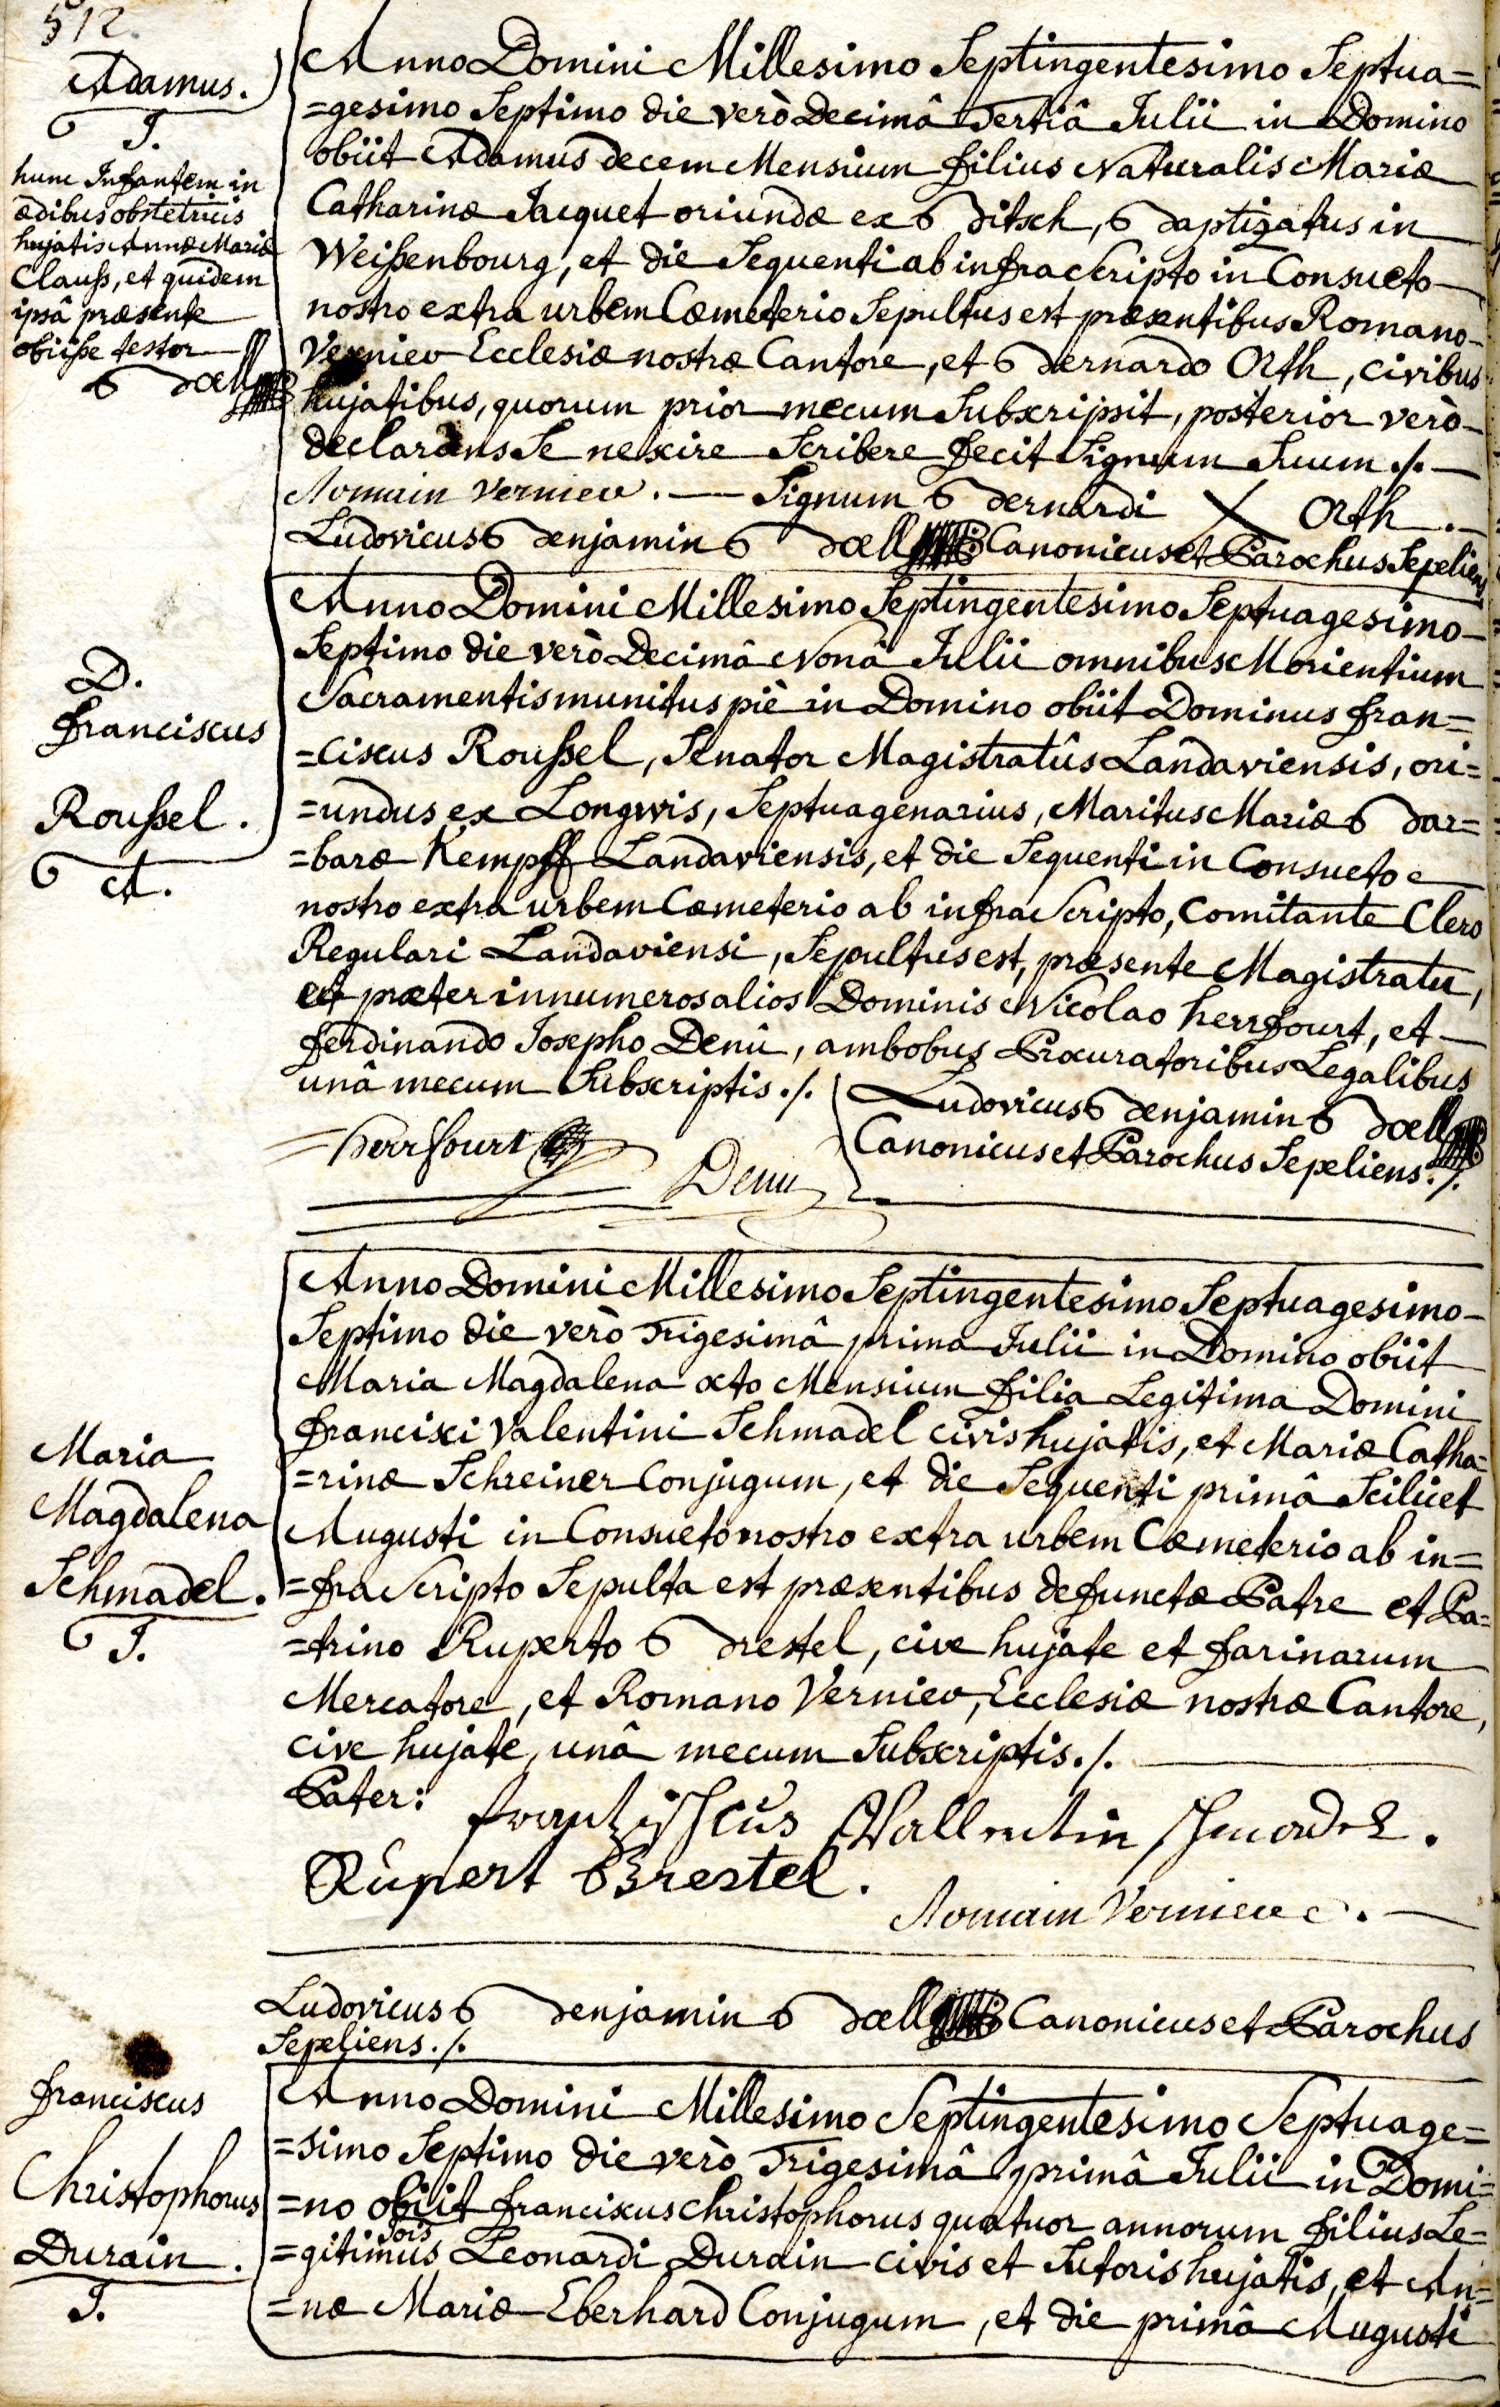 512.
Adamus.
J.
hunc Infantem in
ædibus obstetricis
hujatis Annæ Mariæ
Clauß, et quidem
ipsâ præsente
obiiße testor
Bœll
Anno Domini Millesimo Septingentesimo Septua=
=gesimo Septimo die verò Decimâ Tertiâ Julii in Domino
obiit Adamus decem Mensium filius Naturalis Mariæ
Catharinæ Jacquet oriundæ ex Bitsch, Baptizatus in
Weißenbourg, et die Sequenti ab infra Scripto in Consueto
nostro extra urbem Cœmeterio Sepultus est præsentibus Romano
Verniev Ecclesiæ nostræ Cantore, et Bernardo Orth, civibus
hujatibus, quorum prior mecum Subscripsit, posterior verò
declarans Se nescire Scribere fecit Signum Suum ./.
Romain Verniev. Signum Bernardi X Orth.
Ludovicus Benjamin Bœll Canonicus et Parochus Sepeliens
D.
Franciscus
Roußel.
A.
Anno Domini Millesimo Septingentesimo Septuagesimo
Septimo die verò Decimâ Nonâ Julii omnibus Morientium
Sacramentis munitus piè in Domino obiit Dominus Fran=
=ciscus Roußel, Senator Magistratûs Landaviensis, ori=
=undus ex Longwis, Septuagenarius, Maritus Mariæ Bar=
=baræ Kempff Landaviensis, et die Sequenti in Consueto
nostro extra urbem Cœmeterio ab infra Scripto, Comitante Clero
Regulari Landaviensi, Sepultus est, præsente Magistratu,
et præter innumeros alios Dominis Nicolao herrfourt, et
Ferdinando Josepho Denû, ambobus Procuratoribus Legalibus
unâ mecum Subscriptis ./.
Ludovicus Benjamin Bœll
Canonicus et Parochus Sepeliens ./.
herrfourt
Denu
Maria
Magdalena
Schmadel.
J.
Anno Domini Millesimo Septingentesimo Septuagesimo
Septimo die verò Trigesimâ prima Julii in Domino obiit
Maria Magdalena octo Mensium filia Legitima Domini
Francisci Valentini Schmadel civis hujatis, et Mariæ Catha=
=rinæ Schreiner Conjugum, et die Sequenti primâ Scilicet
Augusti in Consueto nostro extra urbem Cœmeterio ab in=
=fra Scripto Sepulta est præsentibus defunctæ Patre et Pa=
=trino Ruperto Brestel, cive hujate et farinarum
Mercatore, et Romano Verniev, Ecclesiæ nostræ Cantore,
cive hujate, unâ mecum Subscriptis ./.
Pater: frantzisscus Vallentin schmadel.
Rupert Brestel.
Romain Verniev.
Ludovicus Benjamin Bœll Canonicus et Parochus
Sepeliens ./.
Franciscus
Christophorus
Durain.
J.
Anno Domini Millesimo Septingentesimo Septuage=
=simo Septimo die verò Trigesimâ primâ Julii in Domi=
=no obiit Franciscus Christophorus quatuor annorum filius Le=
=gitimus Jois Leonardi Durain civis et Sutoris hujatis, et An=
=næ Mariæ Eberhard Conjugum, et die primâ Augusti